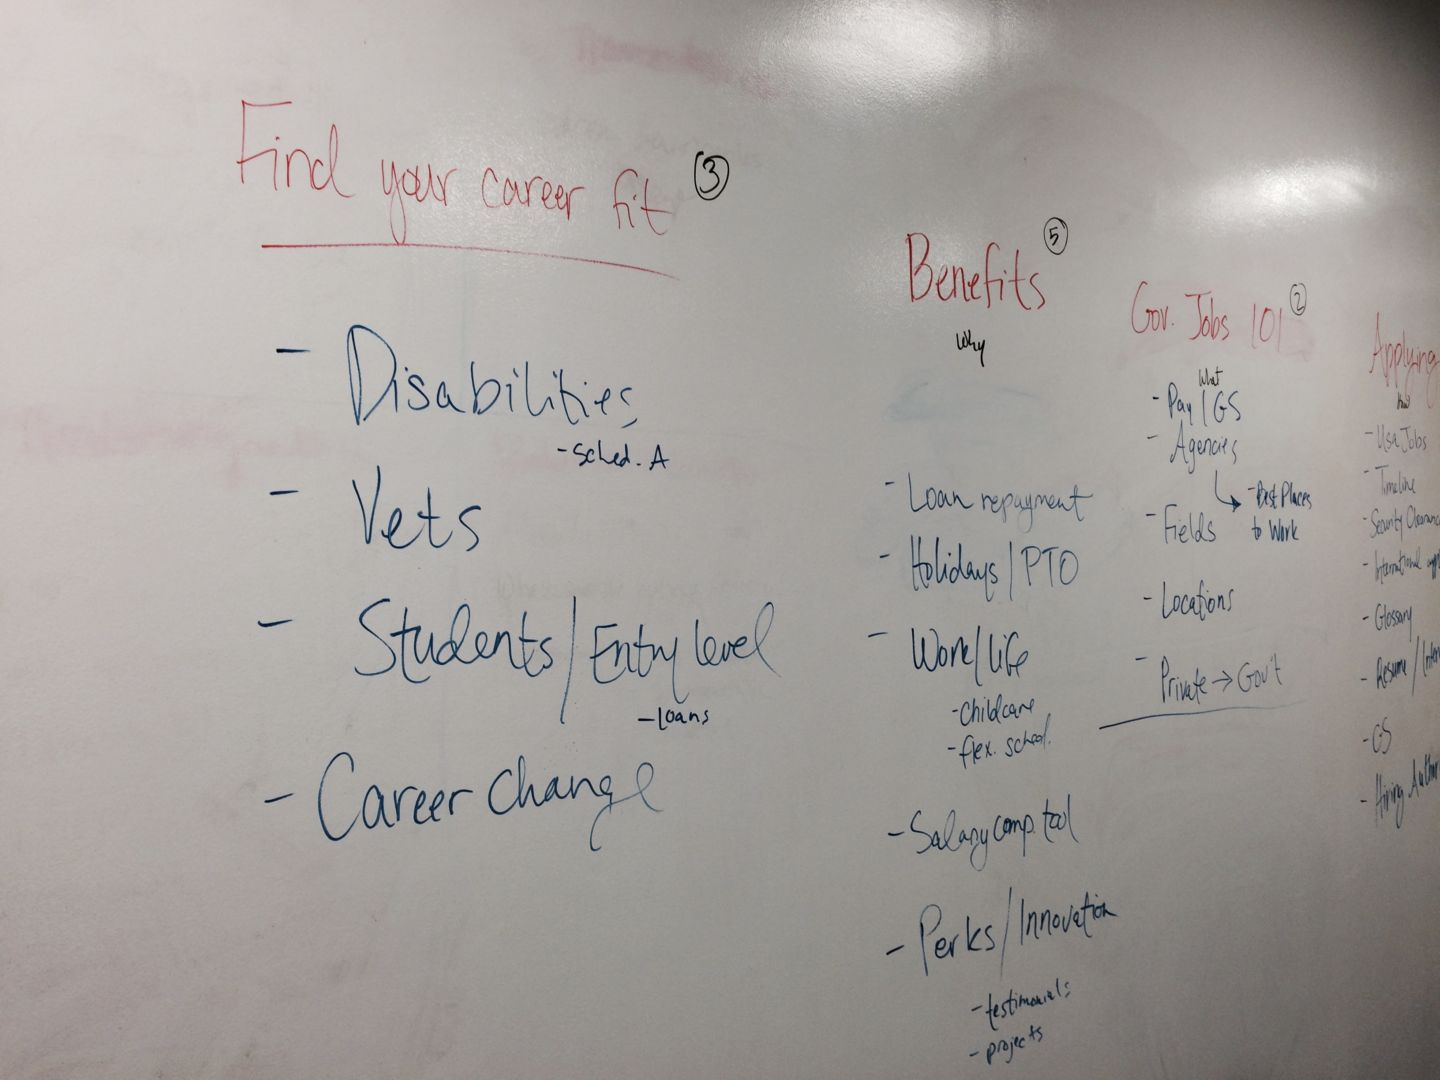 Find your career fit ③
- Disabilities
- Sched. A
- Vets
- Students/Entry level
- Loans
- Career change
Benefits ⑤
Why
- Loan repayment
- Holidays/PTO
- Work/life
- childcare
- flex. sched.
- Salary comp. tool
- Perks/Innovation
- testimonials
- projects
Gov. Jobs 101 ②
What
- Pay/GS
- Agencies
- Best Places
to Work
- Fields
- Locations
- Private → Gov't
Applying
how
- Usa Jobs
- Timeline
- Security Clearanc
- International
- Glossary
- Resume/Inter
- GS
- Hiring Author